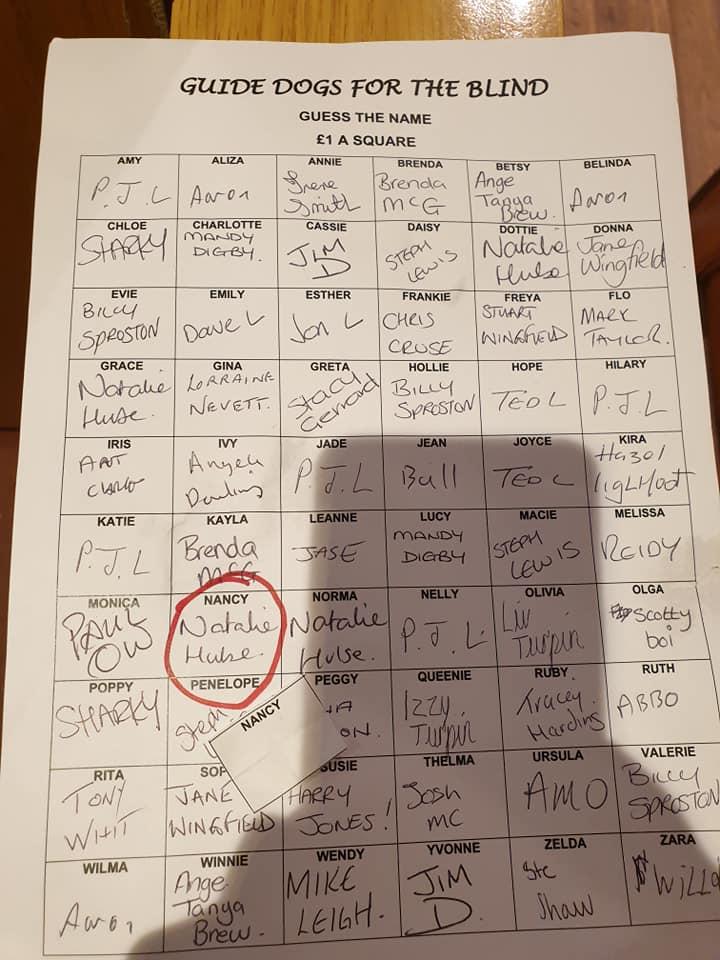 GUIDE DOGS FOR THE BLIND
GUESS THE NAME
£1 A SQUARE
AMY ALIZA ANNIE BRENDA BETSY BELINDA
P.J.L Aaron Irene Smith Brenda McG Ange Tanya Brew. Aaron
CHLOE CHARLOTTE CASSIE DAISY DOTTIE DONNA
SHARKY MANDY DIGBY. JIM D STEPH LEWIS Natalie Hulse Jane Wingfield
EVIE EMILY ESTHER FRANKIE FREYA FLO
BILLY SPROSTON Dave L Jon L CHRIS CRUSE STUART WINGFIELD MARK TAYLOR.
GRACE GINA GRETA HOLLIE HOPE HILARY
Natalie Hulse. LORRAINE NEVETT. Stacy Gerrard BILLY SPROSTON TED L P.J.L
IRIS IVY JADE JEAN JOYCE KIRA
Angela P.J.L Ball TED L Hazel lightfoot
KATIE KAYLA LEANNE LUCY MACIE MELISSA
P.J.L Brenda McG JASE MANDY DIGBY STEPH LEWIS REIDY
MONICA NANCY NORMA NELLY OLIVIA OLGA
PAUL COW Natalie Hulse. Natalie Hulse. P.J.L. Liv Turpin Scotty boi
POPPY PENELOPE PEGGY QUEENIE RUBY RUTH
SHARKY Steph NANCY ON. IZZY. Turpin Tracey Harding ABBO
RITA SOP SUSIE THELMA URSULA VALERIE
TONY WHIT JANE WINGFIELD HARRY JONES! Josh MC AMO BILLY SPROSTON
WILMA WINNIE WENDY YVONNE ZELDA ZARA
Aaron Ange Tanya Brew. MIKE LEIGH. JIM D. Ste Shaw Willo